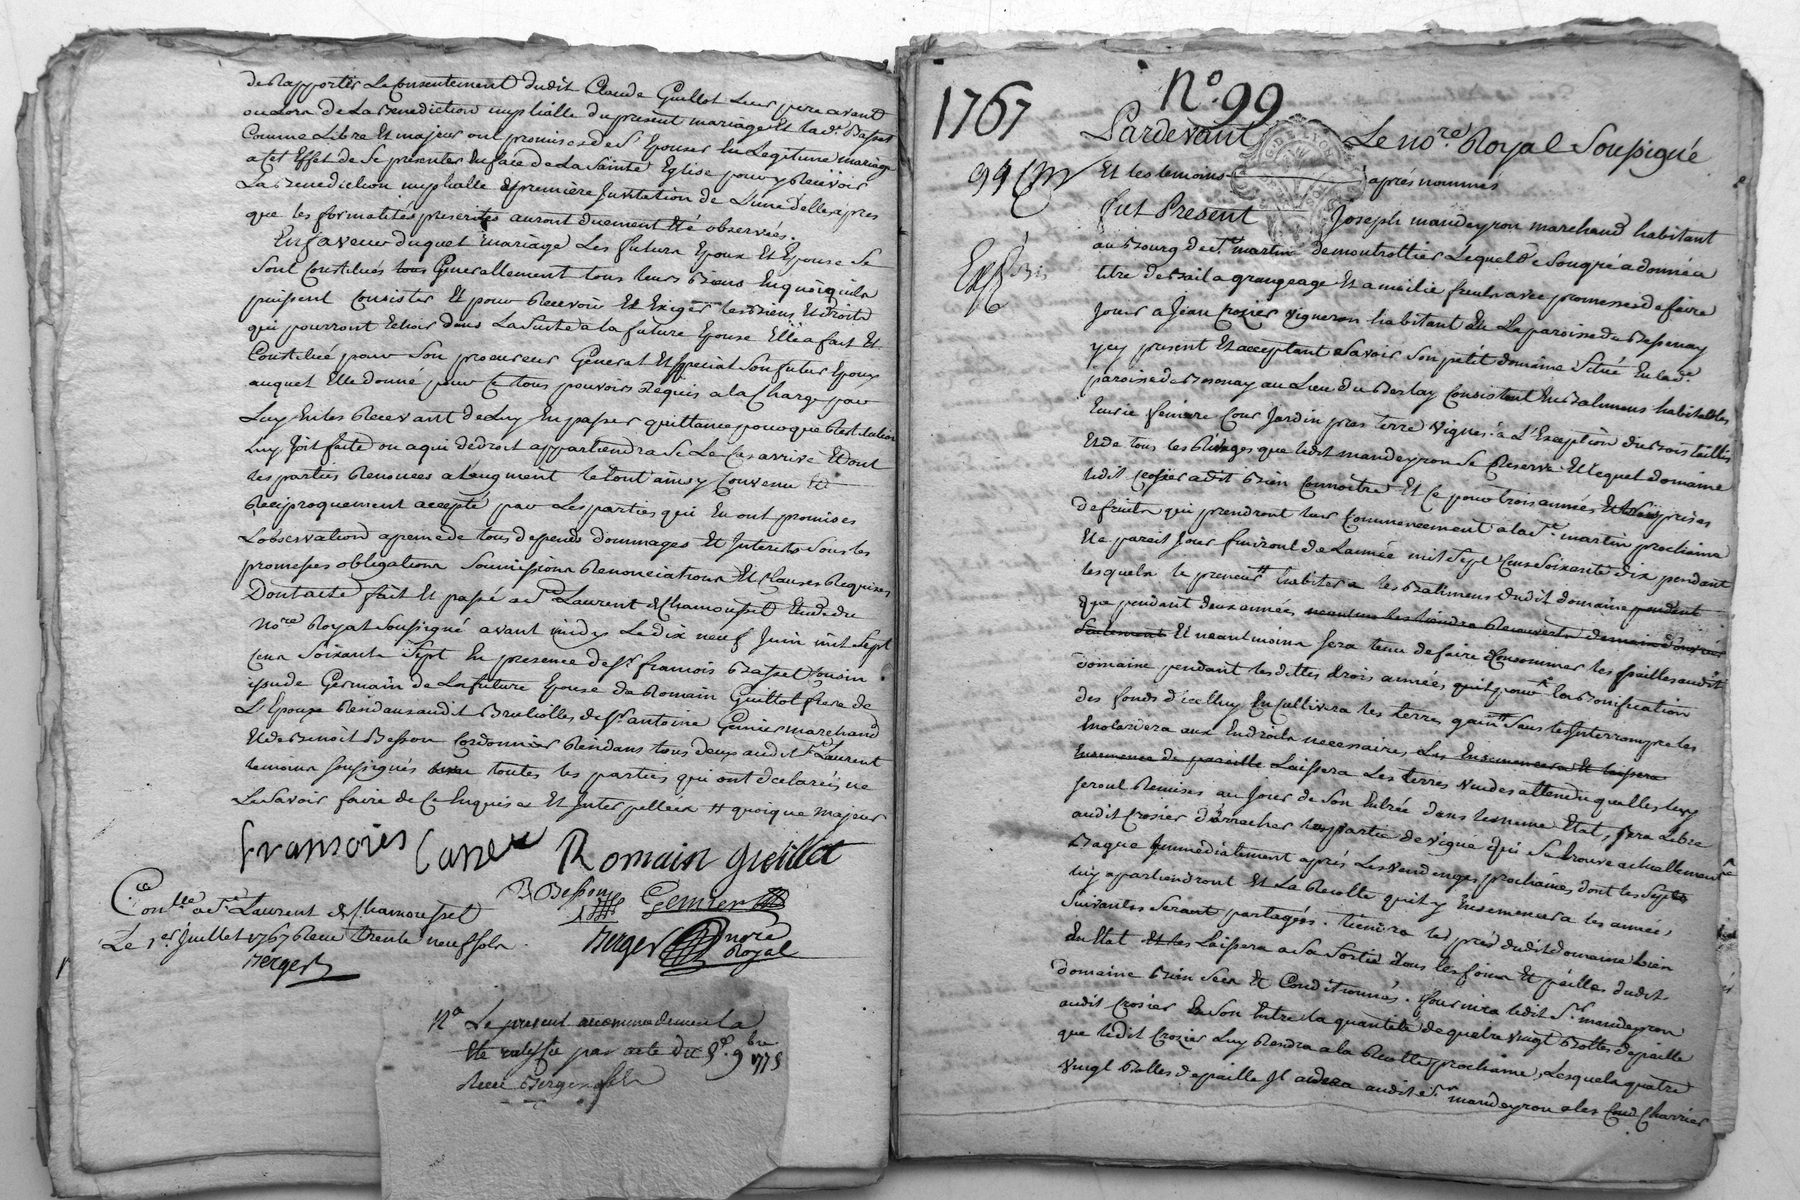 de Rapporter Le Consentement dudit Claude Guillot Leur pere avant
ou Lors de La Benediction nuptialle du present mariage Et lad.e Basset
Comme Libre Et majeur ont promis de S'Epouser En Legitime mariage
a Cet Effet de Se presenter En face de La Sainte Eglise pour y Recevoir
La Benediction nuptialle a premiere Invitation de L'une d'elles apres
que les formalités prescrites auront duement Eté observées.
En faveur Duquel mariage Les futurs Epoux Et Epouse Se
Sont Constitués Generallement tous leurs Biens En quoi qu'ils
puissent Consister Et pour Recevoir Et Exiger les Biens Et droits
qui pourront Echoir dans La Suite a la future Epouse Elle a fait Et
Constitué pour Son procureur General Et Special Son futur Epoux
auquel Elle donne pour Ce tous pouvoirs Requis a la Charge par
Luy En les Recevant de Luy En passer quittance pour que Restitution
luy Soit faite ou a qui de droit appartiendra Si Le Cas arrive Et ont
les parties Renoncées a l'augment le tout ainsy Convenu Et
Reciproquement accepté par Les parties qui En ont promises
L'observation a peine de tous depends dommages Et Interets Sous les
promesses obligations Soumissions Renonciations Et Clauses Requises
Dont acte fait Et passé a St Laurent de Chamousset Etude du
No.re Royal Soussigné avant midy Le Dix neuf Juin mil Sept
Cens Soixante Sept En presence de Sr. francois Basset Cousin
issu de Germain de La future Epouse de Romain Guillot frere de
L'Epoux Residans audit Brullioles de Sr. antoine Genier marchand
Et de Benoit Besson Cordonnier Residans tous deux audit St. Laurent
temoins Soussignés toutes les parties qui ont declarées ne
Le Savoir faire de Ce Enquises Et Interpellées # quoique majeur
fransoies Romain guillot
B Besson Genier
Con.lle a St. Laurent de Chamousset
Le 1er Juillet 1767 Recu trente neuf sols
Berger
Berger No.re Royal
Na Le present accommodement a
Eté passé par acte du 5e. 9bre 1775
Recu Berger
1767 No. 99
Pardevant Le no.re Royal Soussigné
99
Et les temoins après nommés
fut Present Joseph mandeyron marchand habitant
au Bourg de St. martin de montrottier Lequel de Son gré a donné a
titre de Bail a grangeage Et a moitié fruits avec promesses de faire
Jouir a Jean Crozier vigneron habitant En La paroisse de Bessenay
y cy present Et acceptant Savoir Son petit domaine Situé En lad.e
paroisse de Bessenay au Lieu du Consistant En Batimens habitables
Ecurie feniere Cour Jardin pres terre vignes a L'Exception du Bois taillis
Et de tous les que ledit mandeyron Se Reserve Et lequel domaine
ledit Crozier a dit Bien Connoitre Et Ce pour trois années prises
de fruits qui prendront leur Commencement a la St. martin prochaine
Et a pareil Jour finiront de L'année mil Sept Cens Soixante dix pendant
lesquels le preneur # habitera les Batimens dudit domaine pendant
que pendant deux années
Seulement Et neantmoins Sera tenu de faire Consommer les pailles audit
domaine pendant lesdittes trois années pour la Bonification
des fonds d'icelluy En Cultivera les terres Sans les Interrompre les
Enclorera aux Endroits necessaires Les Ensemencera Et laissera
Ensemencé de pareille Laissera Les terres vuides attendu qu'elles luy
Seront Remises au Jour de Son Entrée dans le meme Etat, Sera Libre
audit Crozier d'arracher la partie de vigne qui Se trouve actuellement
Immediatement après Les vendenges prochaines dont les
luy apartiendront Et La Recolte qu'il y Ensemencera les années
Suivantes Seront partagées. tiendra les pres dudit domaine Bien
En Etat Laissera a Sa Sortie tous les foins Et pailles dudit
domaine Bien Secs Et Conditionnés. fournira ledit Sr. mandeyron
audit Crozier a Son Entre la quantité de quatre vingt Bottes de paille
que ledit Crozier Luy Rendra a la Recolte prochaine, Lesquels quatre
vingt Bottes de paille Il aidera audit Sr. mandeyron a les Charrier